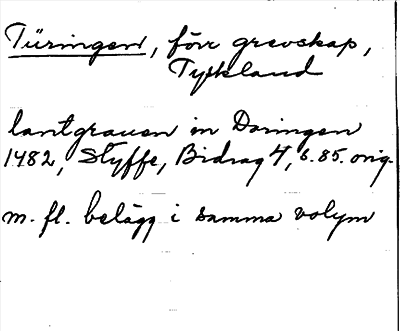 Türingen, förr grevskap,
Tyskland
lantgrauen in Doringen
1482, Styffe, Bidrag 4, s. 85. orig.
m. fl. belägg i samma volym